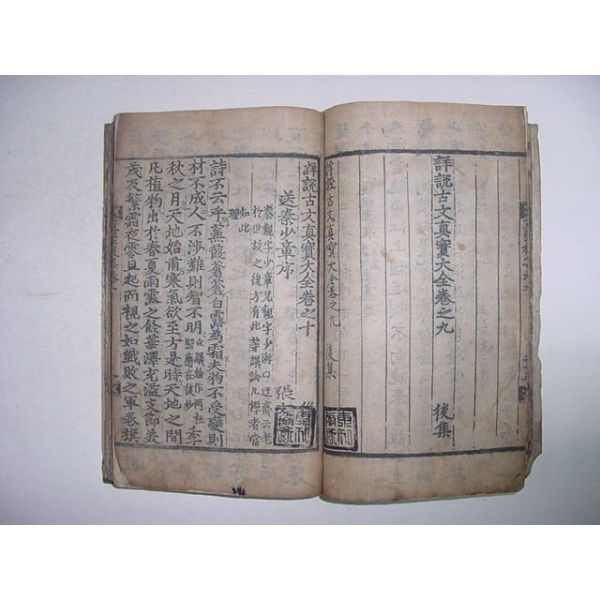 詳說古文真寶大全卷之九 後集
詳說古文真寶大全卷之九 後集
詳說古文真寶大全卷之十 後
送秦少章序 張
秦觀字少章兄觀字少游○迂齋云老
於世故之後方有此等議論凡作者當
如此
詩不云乎蒹葭蒼蒼白露為霜夫物不受變則
材不成人不涉難則智不明
季
秋之月天地始肅寒氣欲至方是時天地之間
凡植物出於春夏雨露之餘華澤充溢支節美
茂及繁霜夜零旦起而視之如戰敗之軍卷旗